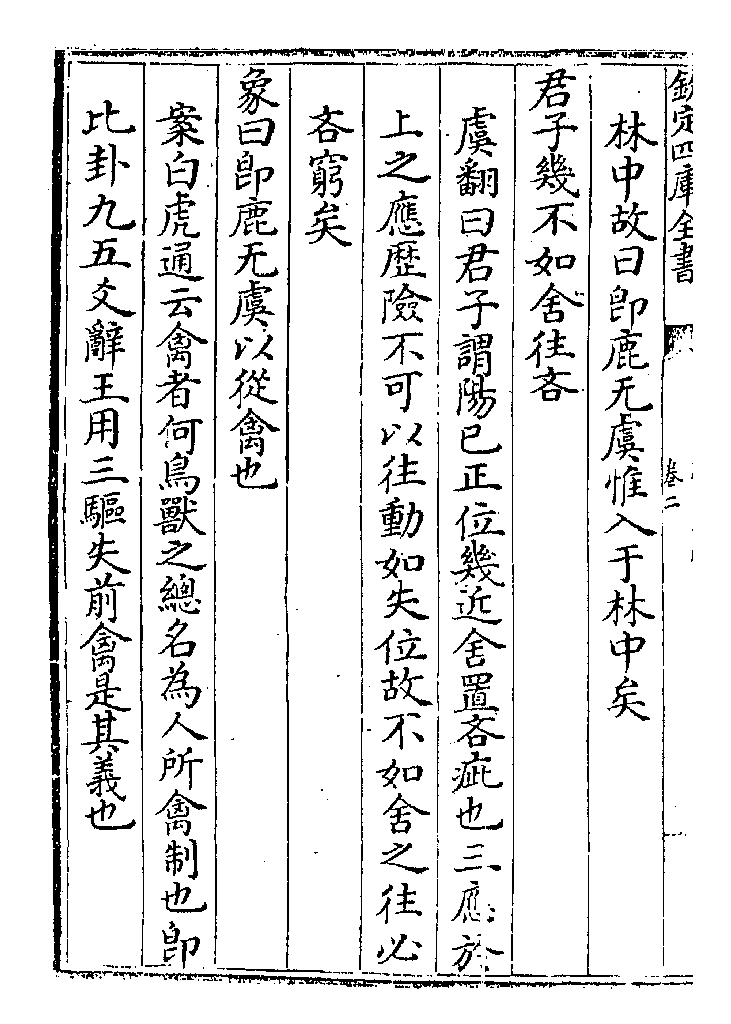 欽定四庫全書
卷二
林中故曰卽鹿无虞惟入于林中矣
君子幾不如舍往吝
虞翻曰君子謂陽已正位幾近舍置吝疵也三應於
上之應歴險不可以往動如失位故不如舍之往必
吝窮矣
象曰卽鹿无虞以從禽也
案白虎通云禽者何鳥獸之總名為人所禽制也卽
比卦九五爻辭王用三驅失前禽是其義也